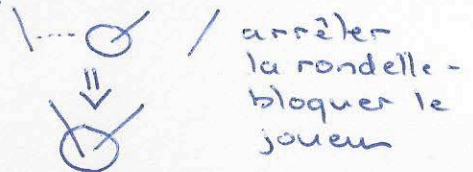 arrêter
la rondelle -
bloquer le
joueur